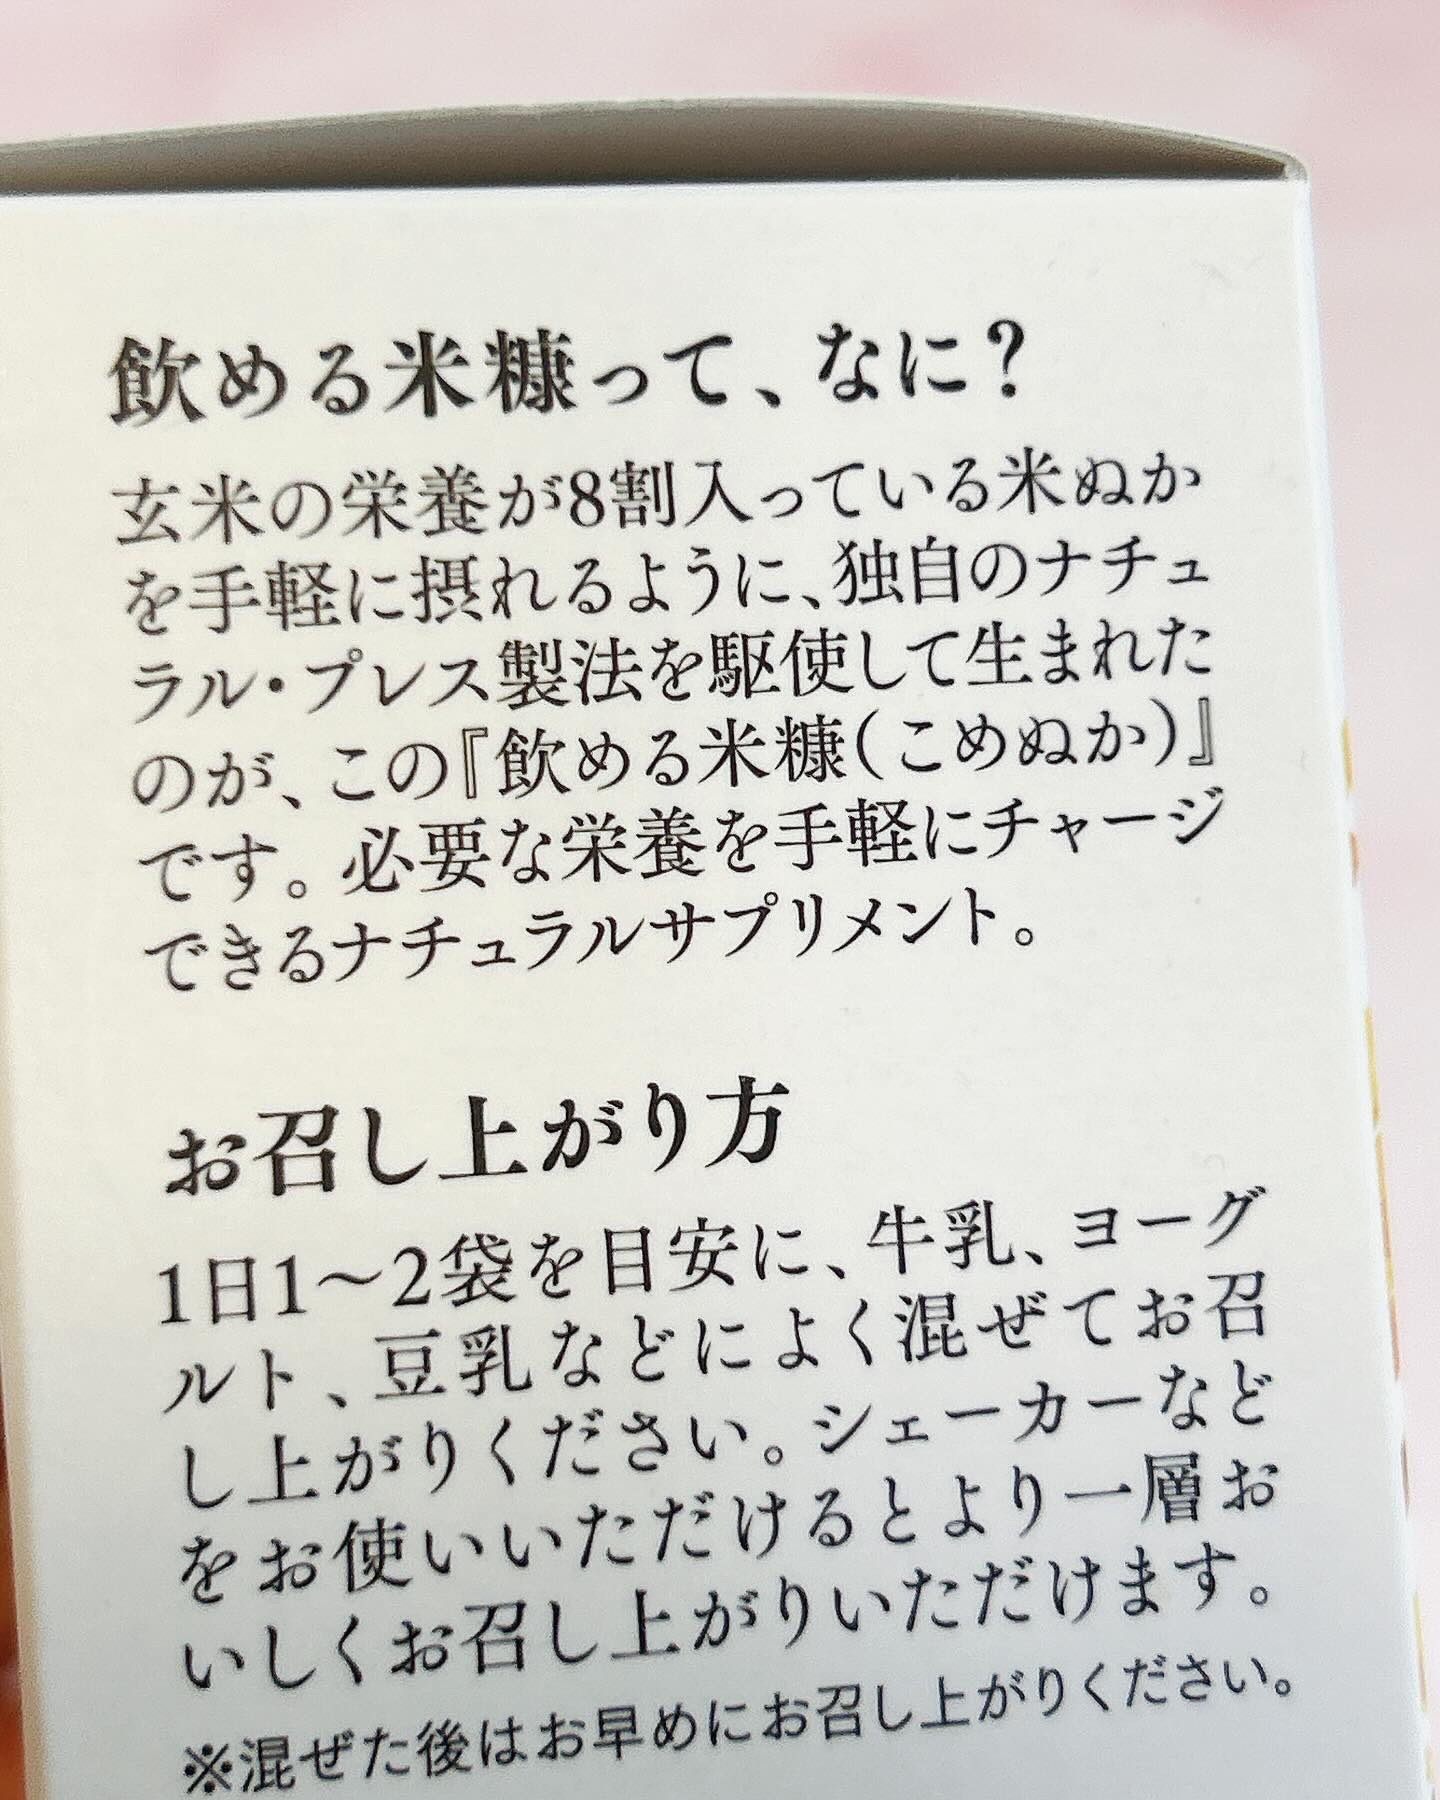 飲める米糠って、なに?
玄米の栄養が8割入っている米ぬか
を手軽に摂れるように、独自のナチュ
ラル・プレス製法を駆使して生まれた
のが、この『飲める米糠(こめぬか)』
です。必要な栄養を手軽にチャージ
できるナチュラルサプリメント。
お召し上がり方
1日1〜2袋を目安に、牛乳、ヨーグ
ルト、豆乳などによく混ぜてお召
し上がりください。シェーカーなど
をお使いいただけるとより一層お
いしくお召し上がりいただけます。
※混ぜた後はお早めにお召し上がりください。